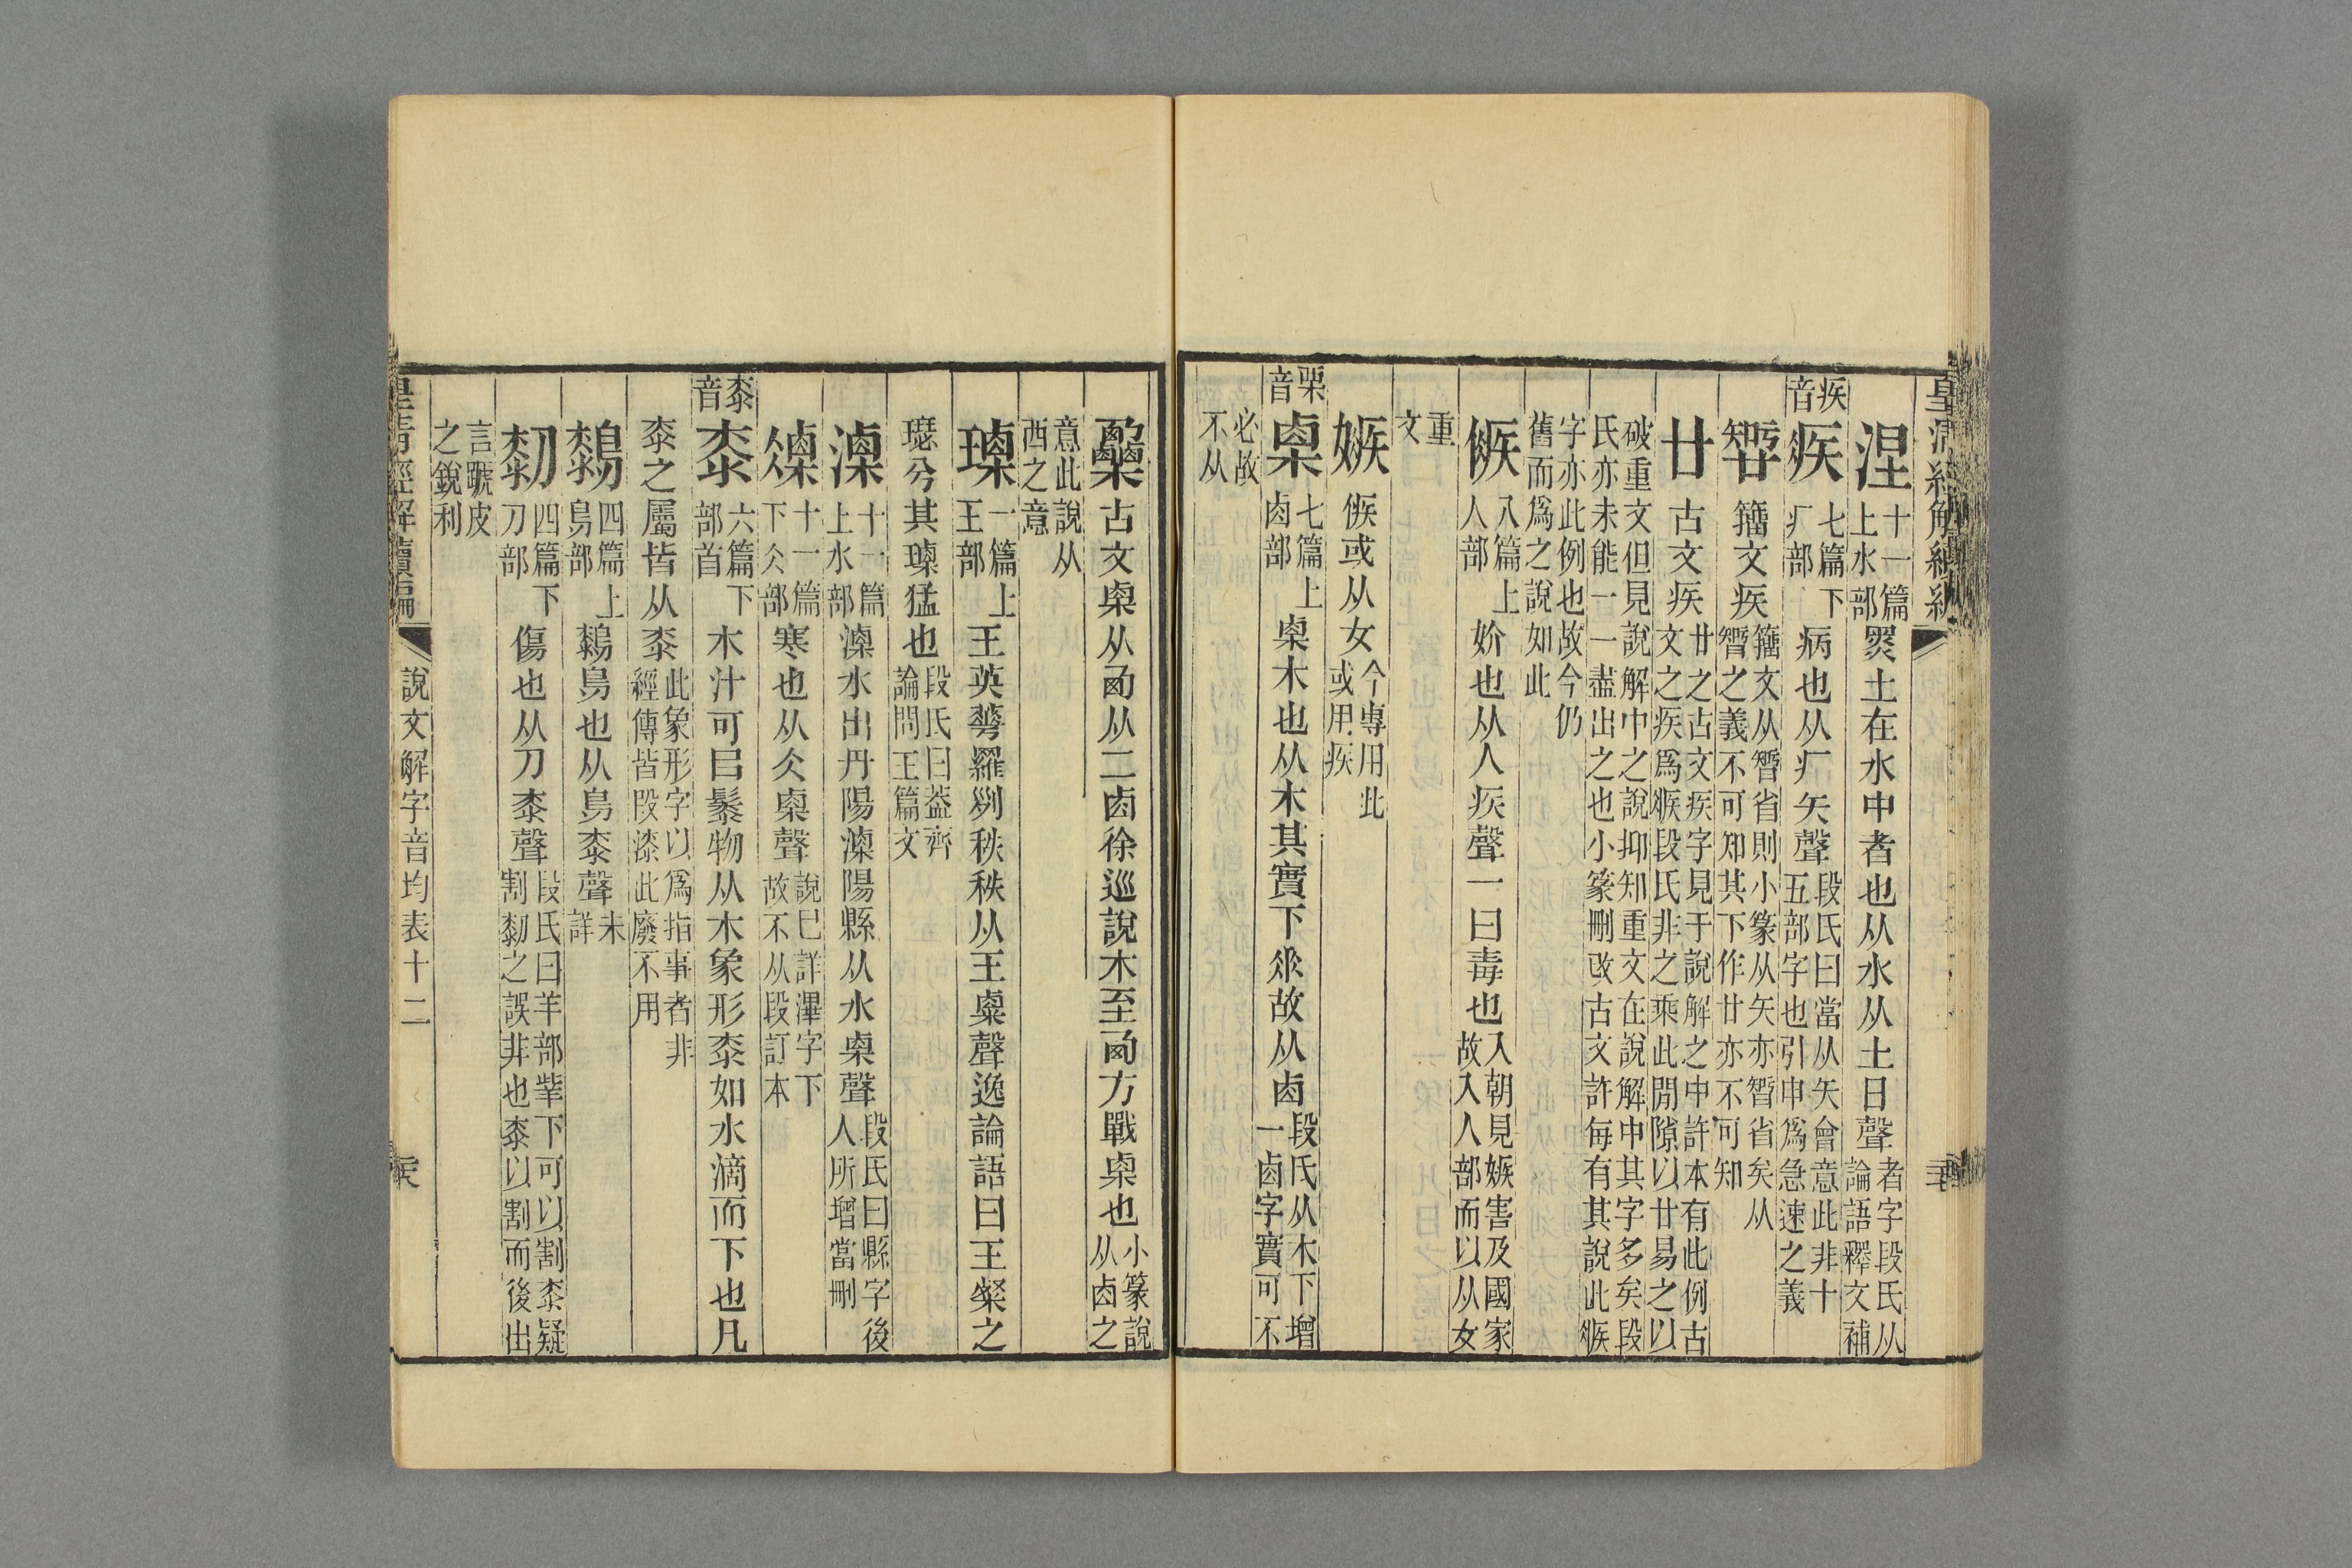 皇清經解續編
涅 十一篇上水部 㒺土在水中者也从水从土日聲 者字段氏从論語釋文補
疾音 疾 七篇下疒部 病也从疒矢聲 段氏曰當从矢會意此非十五部字也引申爲急速之義
籒文疾 籒文从𥏼省則小篆从矢亦𥏼省矣从𥏼之義不可知其下作廿亦不可知
廿 古文疾 廿之古文疾字見于說解之中許本有此例古文之疾爲𤶅段氏非之乘此閒隙以廿易之以
破重文但見說解中之說抑知重文在說解中其字多矣段氏亦未能一一盡出之也小篆刪改古文許每有其說此𤶅
字亦此例也故今仍舊而爲之說如此
㑵 八篇上人部 妎也从人疾聲一曰毒也 入朝見嫉害及國家故入人部而以从女
重文
嫉 㑵或从女 今專用此或用疾
栗音 㮚 七篇上卤部 㮚木也从木其實下𠂹故从卤 段氏从木下增一卤字實可不
必故不从
古文㮚从西从二卤徐巡說木至西方戰㮚也 小篆說从卤之
意此說从西之意
瑮 一篇上王部 王英華羅列秩秩从王㮚聲逸論語曰王粲之
瑟兮其瑮猛也 段氏曰葢齊論問王篇文
溧 十一篇上水部 溧水出丹陽溧陽縣从水㮚聲 段氏曰縣字後人所增當刪
凓 十一篇下仌部 寒也从仌㮚聲 說巳詳滭字下故不从段訂本
桼音 桼 六篇下部首 木汁可㠯髹物从木象形桼如水滴而下也凡
桼之屬皆从桼 此象形字以爲指事者非經傳皆叚漆此廢不用
鶈 四篇上鳥部 鶈鳥也从鳥桼聲 未詳
剓 四篇下刀部 傷也从刀桼聲 段氏曰羊部𦍩下可以割桼疑割剓之誤非也桼以割而後出
言虒皮之銳利
皇清經解續編 說文解字音均表十二